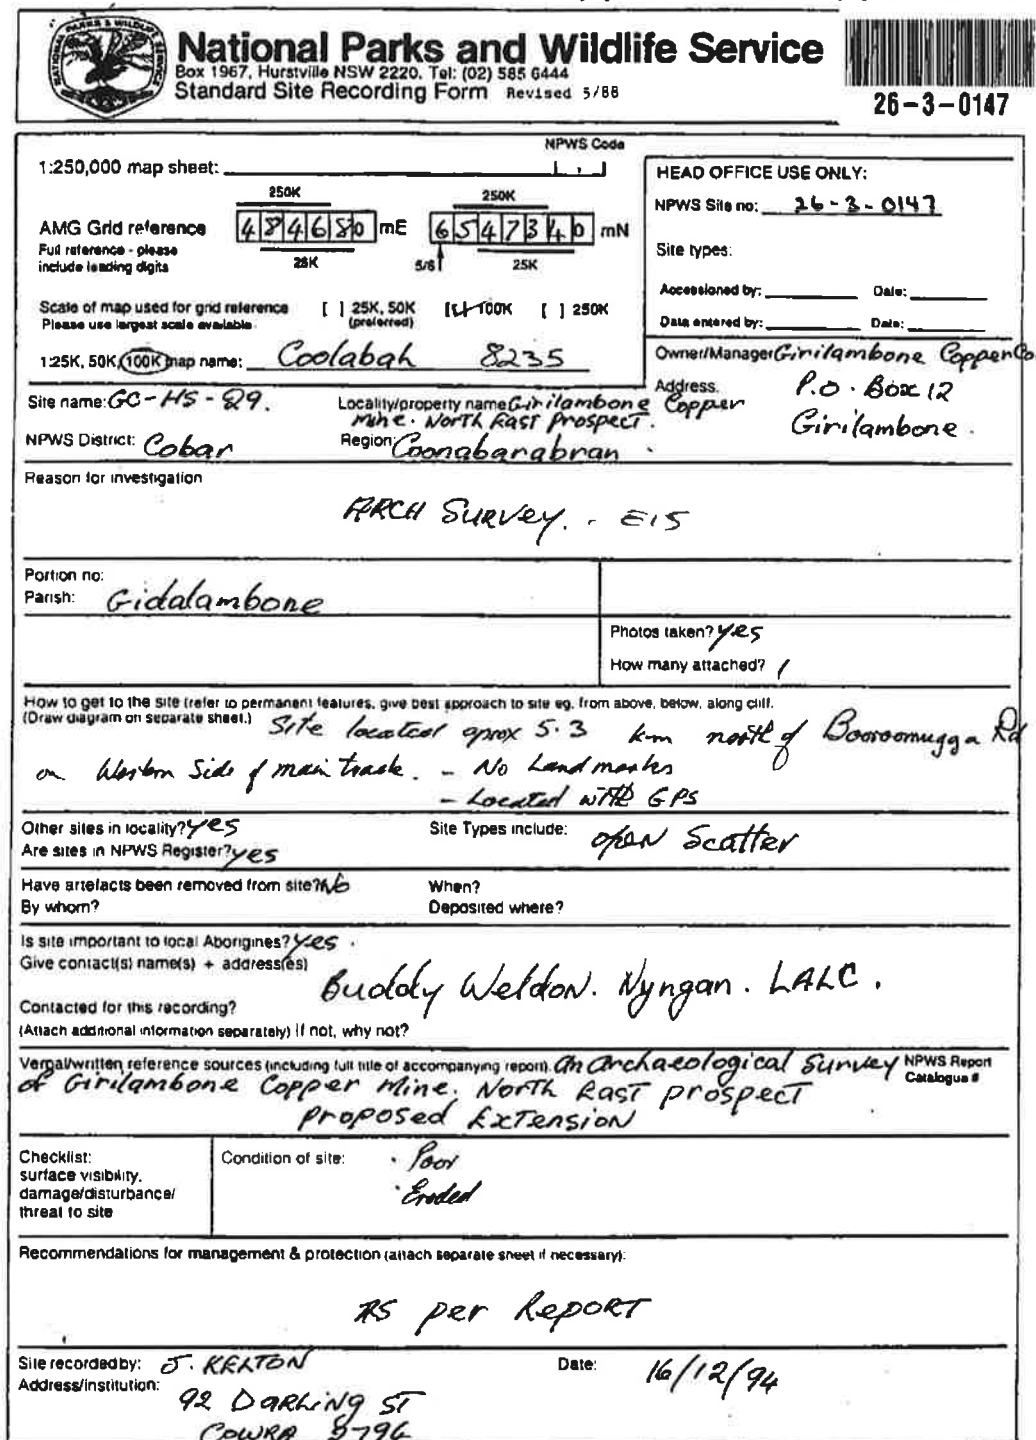 NATIONAL PARKS & WILDLIFE SERVICE
National Parks and Wildlife Service
Box 1967, Hurstville NSW 2220. Tel: (02) 585 6444
Standard Site Recording Form Revised 5/88
26-3-0147
NPWS Code
1:250,000 map sheet:
HEAD OFFICE USE ONLY:
NPWS Site no: 26-3-0147
Site types:
Accessioned by: Date:
Data entered by: Date:
250K 250K
AMG Grid reference 484680 mE 6547340 mN
Full reference - please
include leading digits
25K 5/6 25K
Scale of map used for grid reference [ ] 25K, 50K [✓] 100K [ ] 250K
Please use largest scale available (preferred)
1:25K, 50K, 100K map name: Coolabah 8235
Owner/Manager Girilambone Copper Co
Address. P.O. Box 12
Girilambone.
Site name: GC-HS-29. Locality/property name Girilambone Copper
Mine. North East Prospect.
NPWS District: Cobar Region: Coonabarabran.
Reason for investigation
ARCH SURVEY. - EIS
Portion no:
Parish: Gidalambone
Photos taken? yes
How many attached? 1
How to get to the site (refer to permanent features, give best approach to site eg. from above, below, along cliff.
(Draw diagram on separate sheet.) Site located aprox 5.3 km north of Booroomugga Rd
on Western Side of main track. - No Landmarks
- Located with GPS
Other sites in locality? yes Site Types include: open Scatter
Are sites in NPWS Register? yes
Have artefacts been removed from site? No When?
By whom? Deposited where?
Is site important to local Aborigines? yes.
Give contact(s) name(s) + address(es)
Buddy Weldon. Nyngan. LALC.
Contacted for this recording?
(Attach additional information separately) If not, why not?
Verbal/written reference sources (including full title of accompanying report). An Archaeological Survey NPWS Report
Catalogue #
of Girilambone Copper Mine. North East prospect
proposed Extension
Checklist:
surface visibility,
damage/disturbance/
threat to site
Condition of site: · Poor
· Eroded
Recommendations for management & protection (attach separate sheet if necessary):
AS per REPORT
Site recorded by: J. KELTON Date: 16/12/94
Address/institution:
92 DARLING ST
COWRA 2794